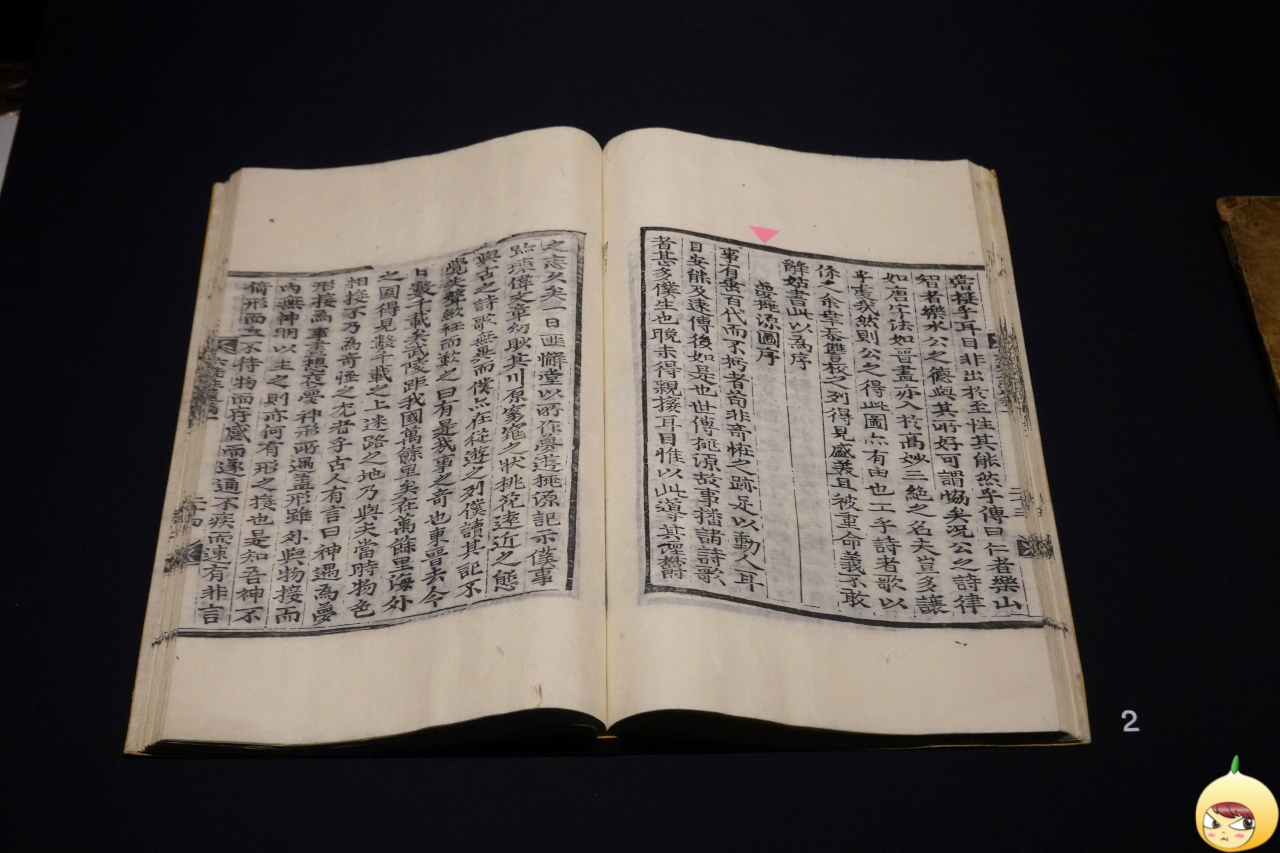 嘗擬乎耳目非出於至性其能然乎傳曰仁者樂山
智者樂水公之德與其所好可謂恊矣况公之詩律
如唐字法如晉畫亦入於高妙三絶之名夫豈多讓
乎虔我然則公之得此圖亦有由也工乎詩者歌以
係之余辱忝讎校之列得見盛義且被重命義不敢
辭姑書此以為序
夢桃源圖序
事有垂百代而不朽者苟非奇恠之跡足以動人耳
目安能及遠傳後如是也世傳桃源故事播諸詩歌
者甚多僕生也晚未得親接耳目惟以此導其湮鬱
之志久矣一日匪懈堂以所作夢遊桃源記示僕事
跡瓌偉文章幼眇其川原窈窕之狀桃花遠近之態
與古之詩歌無異而僕亦在從遊之列僕讀其記不
覺失聲斂衽而歎之曰有是我事之奇也東晉去今
日數千載矣武陵距我國萬餘里矣在萬餘里海外
之國得見數千載之上迷路之地乃與夫當時物色
相接不乃為奇怪之尤者乎古人有言曰神遇為夢
形接為事晝想夜夢神形所遇盖形雖外與物接而
內無神明以主之則亦何有形之接也是知吾神不
倚形而立不待物而存感而遂通不疾而速有非言
二十三
二十四
2